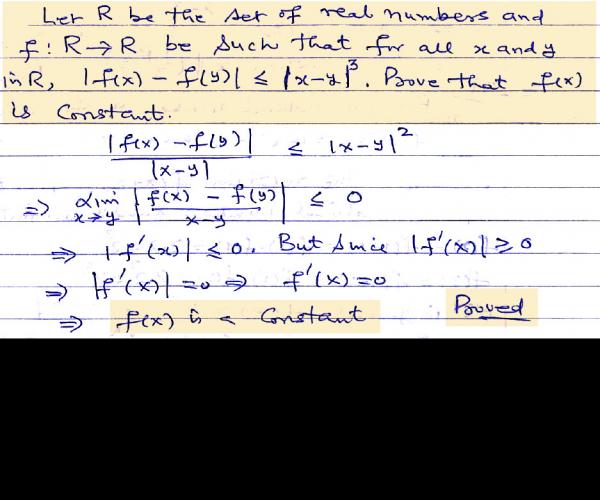 Let R be the set of real numbers and
f : R → R be such that for all x and y
in R, |f(x) - f(y)| ≤ |x-y|³. Prove that f(x)
is Constant.
|f(x) - f(y)| / |x-y| ≤ |x-y|²
⇒ lim x→y |f(x) - f(y) / x-y| ≤ 0
⇒ |f'(x)| ≤ 0. But since |f'(x)| ≥ 0
⇒ |f'(x)| = 0 ⇒ f'(x) = 0
⇒ f(x) is a Constant Proved